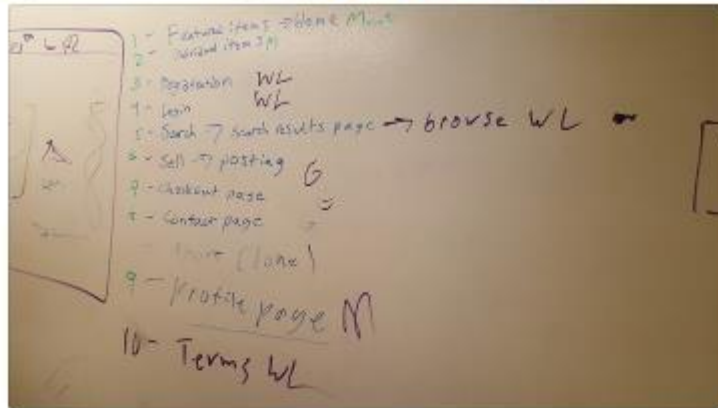 1 - Featured items → Home
2 - items M
3 - Registration WL
4 - Login WL
5 - Search → search results page → browse WL -
6 - Sell → posting G
7 - Checkout page
8 - Contact page
(Done)
9 - Profile page M
10 - Terms WL